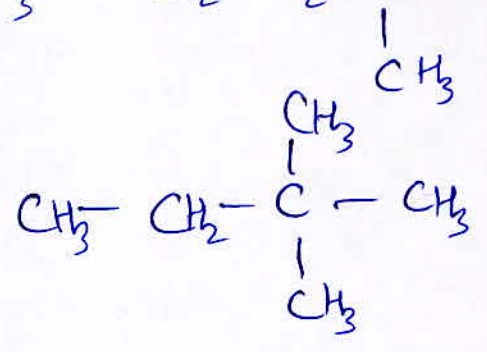 3 2 2
|
CH₃
CH₃
|
CH₃ — CH₂ — C — CH₃
|
CH₃